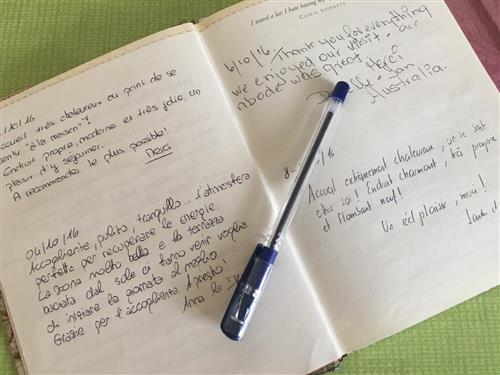 /10/16
Accueil très chaleureux au point de se
sentir "à la maison"!
Endroit propre, moderne et très jolie, un
plaisir d'y séjourner.
A recommander le plus possible!
Merci
04/10/16
Accogliente, pulito, tranquillo... l'atmosfera
perfetta per recuperare le energie.
La zona molto bella e la terrazza
baciata dal sole ci fanno venir voglia
di iniziare la giornata al meglio
Grazie per l'accoglienza. A presto!
Anna &
I travel a lot; I hate having my
6/10/16. Thank you for everything
we enjoyed our visit. our
abode was great.
Merci
Dan
Australia.
8- /16
Accueil extrêmement chaleureux, on se sent
chez soi! Endroit charmant, très propre
et flambant neuf!
Un réel plaisir, merci!